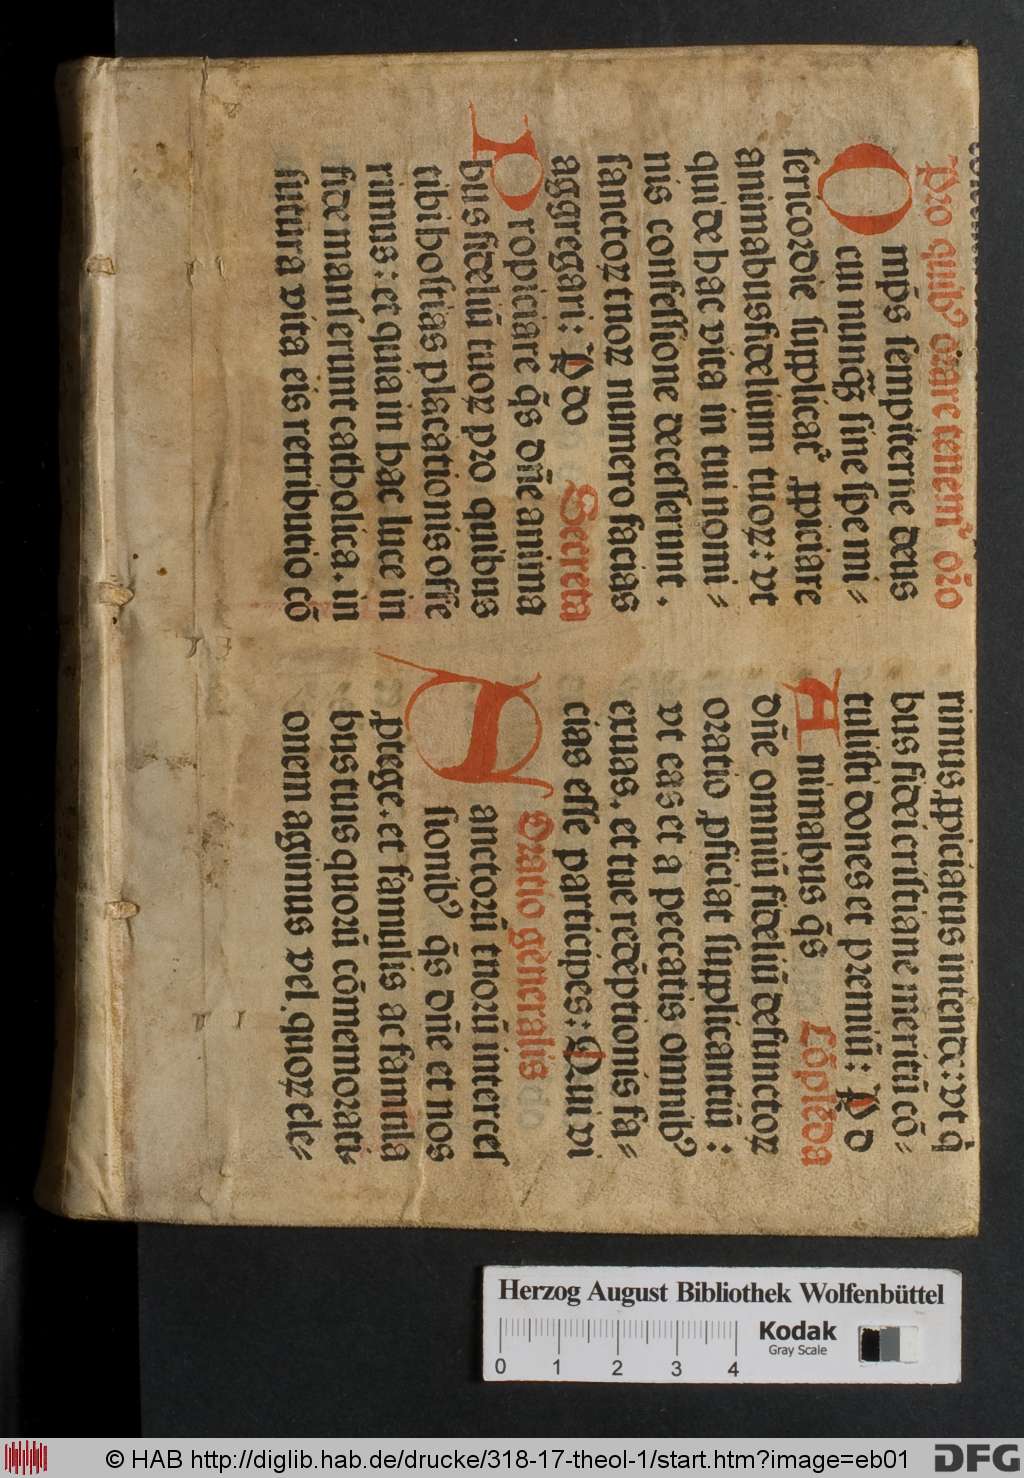 Pro quibꝰ orare tenemr oro̅
Omīps sempiterne deus
cui nunqꝫ sine spe mi=
sericordie supplicatr ꝓpiciare
animabus fidelium tuoꝝ: vt
qui de hac vita in tui nomi=
nis confessione decesserunt.
sanctoꝝ tuoꝝ numero facias
aggregari: P do Secreta
Propiciare q̄s dn̄e anima
bus fideliū tuoꝝ pro quibus
tibi hostias placationis offe
rimus: et quia in hac luce in
fide manserunt catholica. in
futura vita eis retributio cō
rimus ꝓpiciatus intende: vt q
bus fidei cristiane meritū cō=
tulisti dones et premiū: P d
Animabus q̄s Cōplēda
dn̄e omniū fideliū defunctoꝝ
oratio ꝓficiat supplicantiū:
vt eas et a peccatis omnibꝰ
exuas. et tue redēptionis fa=
cias esse participes: Qui vi
Oratio generalis
Sanctorū tuorū interces
sionibꝰ q̄s dn̄e et nos
ꝓtege. et famulis ac famula
bus tuis quorū cōmemorati=
onem agimus vel quoꝝ ele=
Herzog August Bibliothek Wolfenbüttel
0 1 2 3 4
Kodak
Gray Scale
© HAB http://diglib.hab.de/drucke/318-17-theol-1/start.htm?image=eb01
DFG